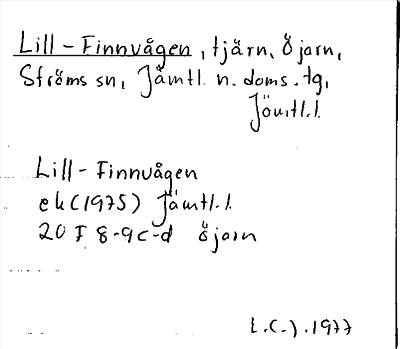 Lill-Finnvågen, tjärn, Öjarn,
Ströms sn, Jämtl. n. doms. tg,
Jämtl.l.
Lill-Finnvågen
ek (1975) Jämtl.l.
20 F 8-9c-d Öjarn
L.C-J. 1977